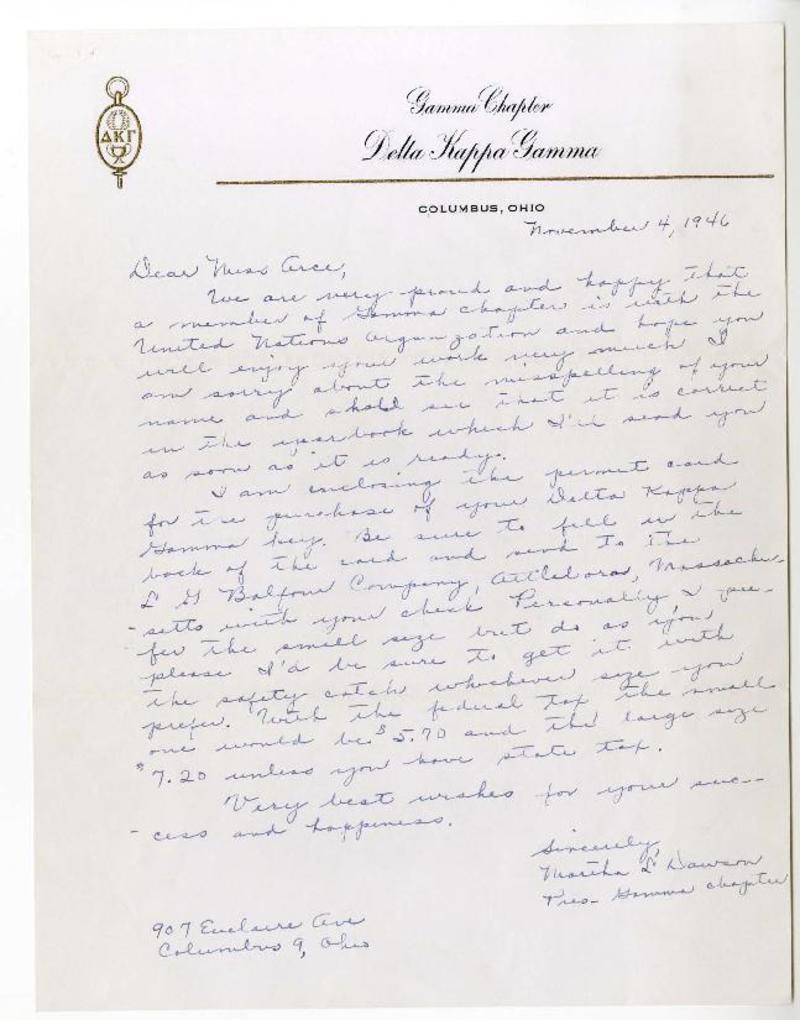 ΔΚΓ
Gamma Chapter
Delta Kappa Gamma
COLUMBUS, OHIO
November 4, 1946
Dear Miss Arce,
We are very proud and happy that
a member of Gamma chapter is with the
United Nations Organization and hope you
will enjoy your work very much I
am sorry about the misspelling of your
name and shall see that it is correct
in the yearbook which I'll send you
as soon as it is ready.
I am enclosing the permit card
for the purchase of your Delta Kappa
Gamma key. Be sure to fill in the
back of the card and send to the
L G Balfour Company, Attleboro, Massachu-
-setts with your check Personally I pre-
fer the small size but do as you
please I'd be sure to get it with
the safety catch whichever size you
prefer. With the federal tax the small
one would be $5.70 and the large size
$7.20 unless you have state tax.
Very best wishes for your suc-
-cess and happiness.
Sincerely,
Martha L Dawson
Pres- Gamma chapter
907 Euclaire Ave
Columbus 9, Ohio